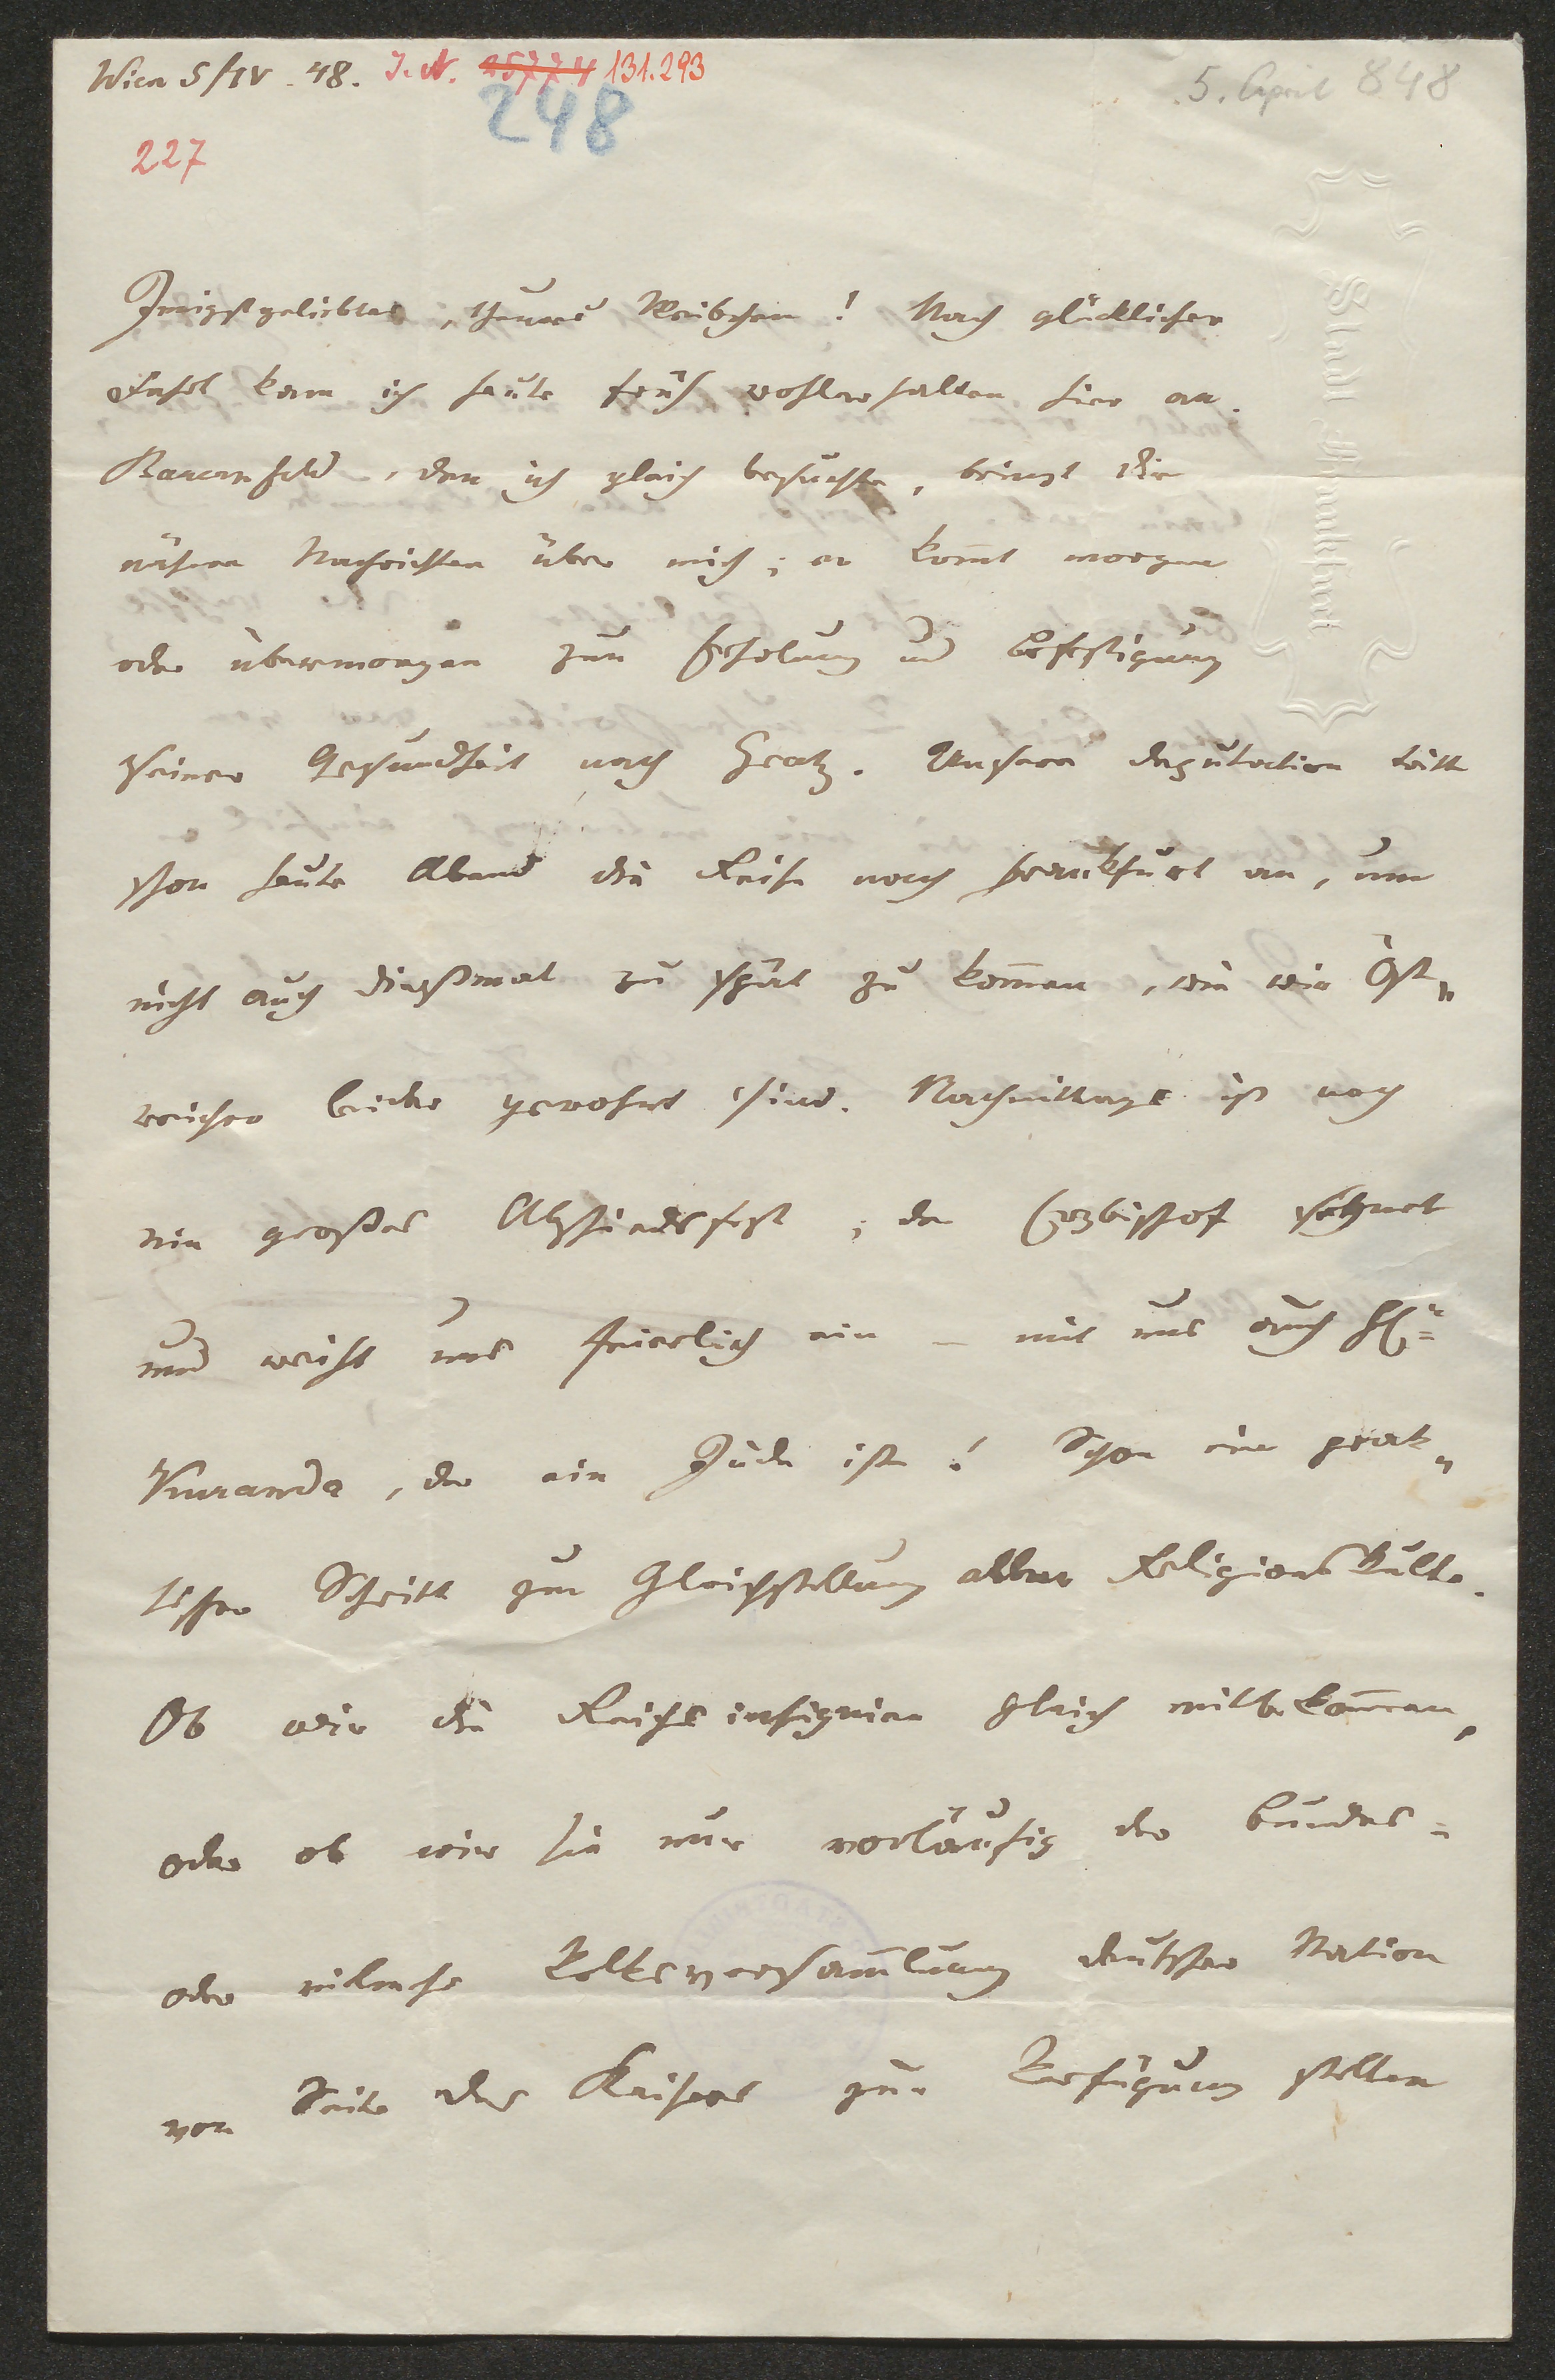 Wien 5/IV. 48. I. N. 25774 131.293
5. April 848
248
227
Stadt Frankfurt
Innigstgeliebtes, theures Weibchen! Nach glücklicher
Fahrt kam ich heute früh wohlerhalten hier an.
Bauernfeld, den ich gleich besuchte, bringt dir
nähere Nachrichten über mich; er kom̅t morgen
oder übermorgen zur Erholung und Befestigung
seiner Gesundheit nach Gratz. Unsere Deputation tritt
schon heute Abend die Reise nach Frankfurt an, um
nicht auch dießmal zu spät zu kom̅en, wie wir Öst„
reicher leider gewohnt sind. Nachmittags ist noch
ein großes Abschiedsfest; der Erzbischof segnet
und weiht uns feierlich ein – mit uns auch
Kuranda, der ein Jude ist! Schon ein prak„
tischer Schritt zur Gleichstellung aller Religionskulte.
Ob wir die Reichsinsignien gleich mitbekom̅en,
oder ob wir sie nur vorläufig der Bundes=
oder vielmehr Volksversam̅lung deutscher Nation
von Seite des Kaisers zur Verfügung stellen